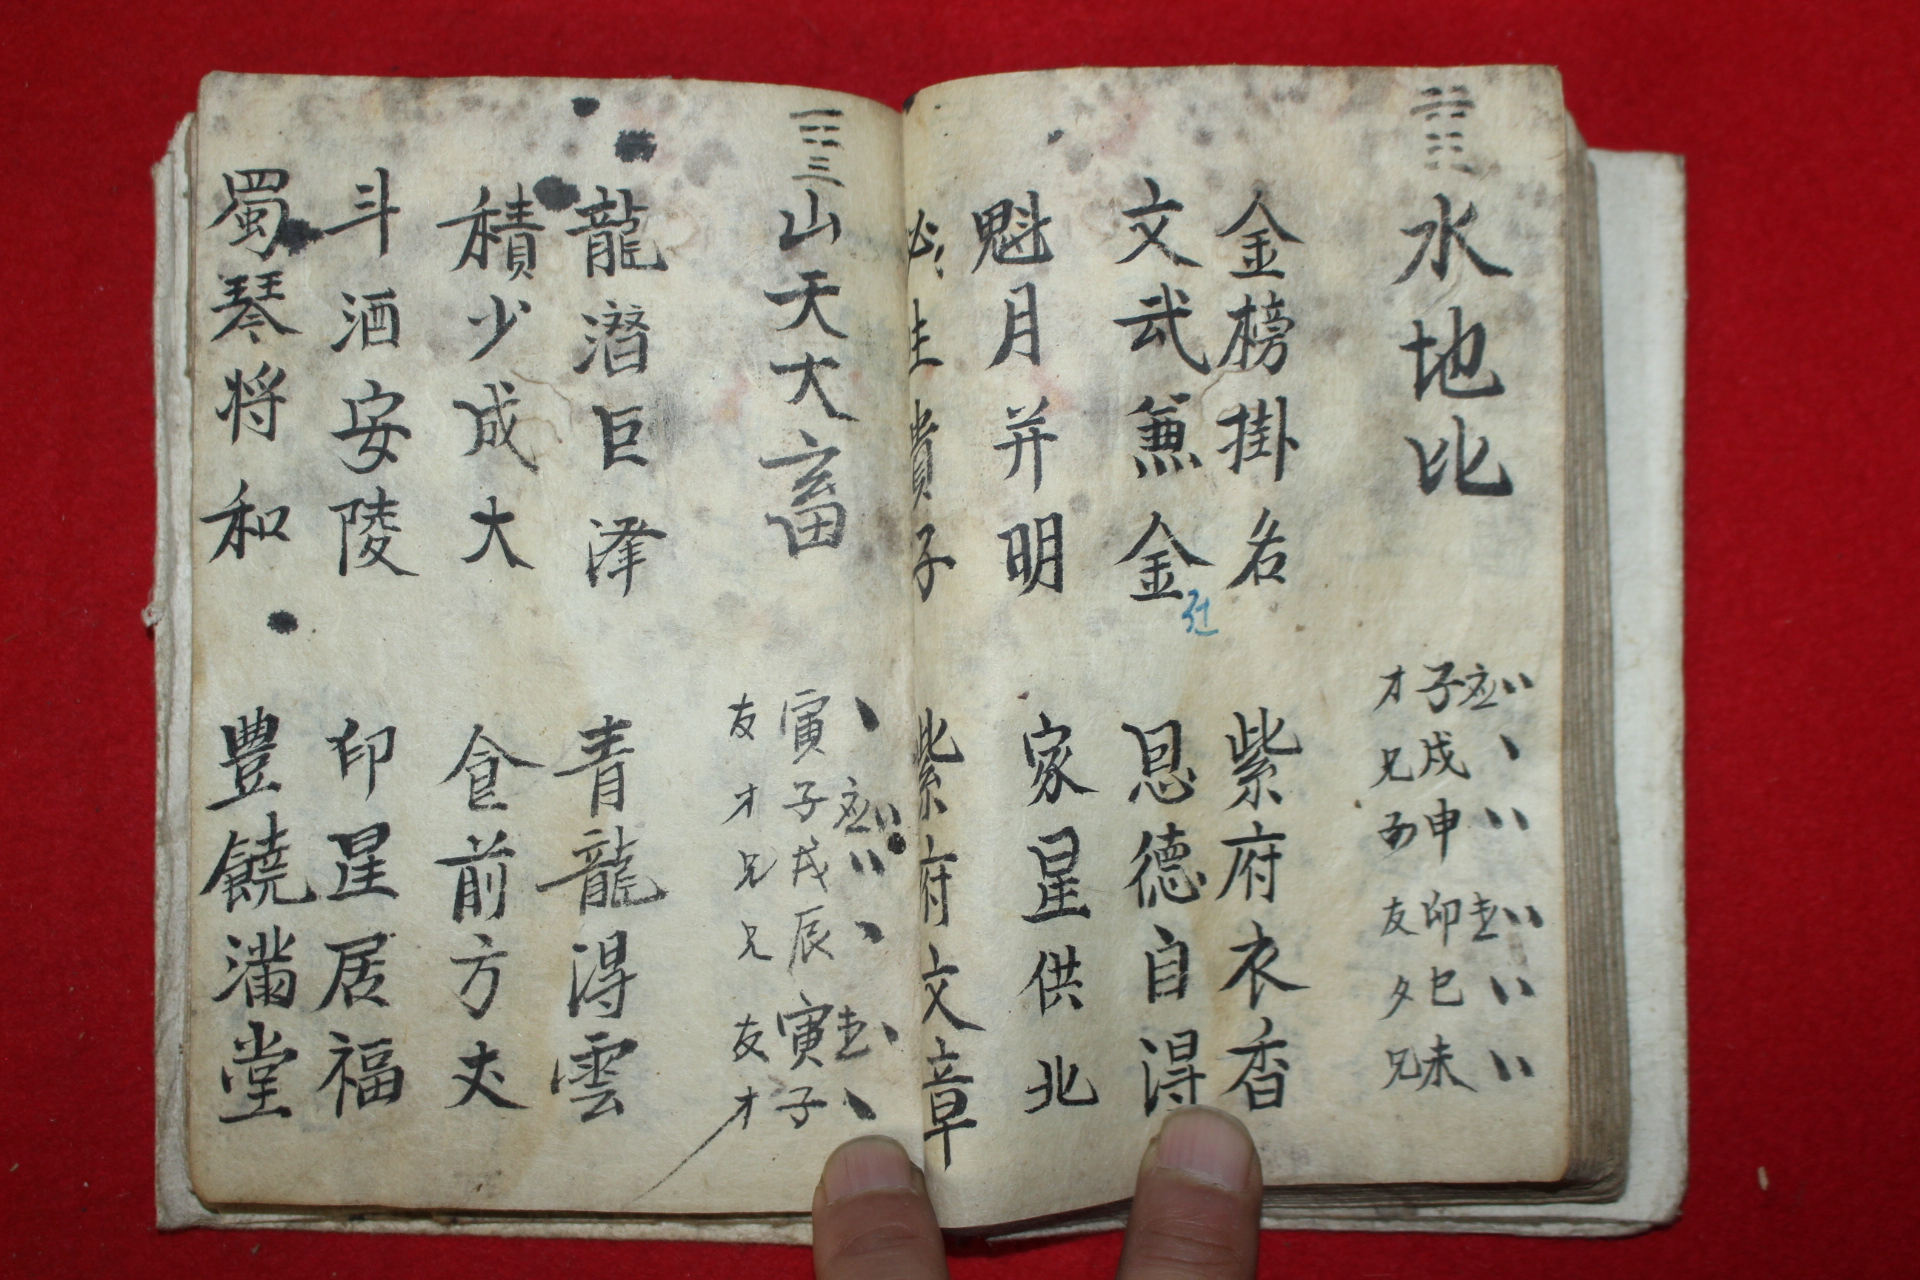 水地比
子应
才
戌
兄
申
卯世
友
巳
未
兄
金榜掛名
紫府衣香
文武兼金
恩德自得
魁月并明
家星供北
必生貴子
紫府文章
山天大畜
寅
友
子应
才
戌
兄
辰
兄
寅世
友
子
才
龍潛巨澤
青龍得雲
積少成大
食前方丈
斗酒安陵
印星居福
蜀琴将和
豊饒満堂